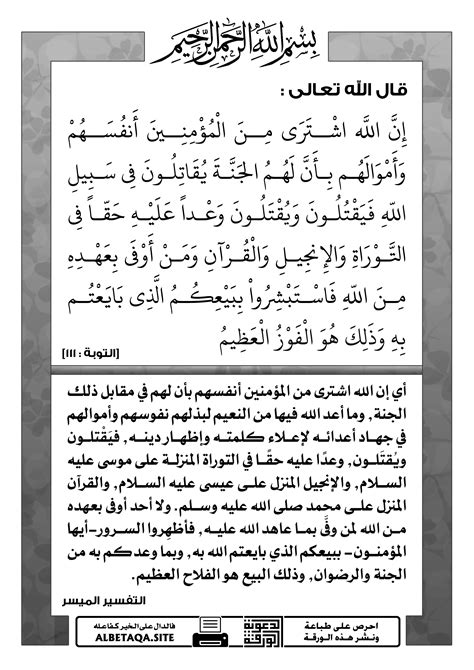 بِسْمِ اللَّهِ الرَّحْمَنِ الرَّحِيمِ
قال الله تعالى :
إِنَّ اللَّه اشْـتَرَى مِـنَ الْمُؤْمِنِـينَ أَنفُسَـهُمْ
وَأَمْوَالَهُـم بِـأَنَّ لَهُـمُ الجَنَّـةَ يُقَاتِلُـونَ فِى سَـبِيلِ
اللّهِ فَيَقْتُلُـونَ وَيُقْتَلُـونَ وَعْـداً عَلَيْـهِ حَقّـاً فِى
التَّـوْرَاةِ وَالإِنجِيـلِ وَالْقُـرْآنِ وَمَـنْ أَوْفَى بِعَهْـدِهِ
مِـنَ اللّهِ فَاسْـتَبْشِرُواْ بِبَيْعِكُـمُ الَّذِى بَايَعْتُـم
بِهِ وَذَلِكَ هُوَ الْفَوْزُ الْعَظِيمُ
[التوبة : ١١١]
أي إن الله اشترى من المؤمنين أنفسهم بأن لهم في مقابل ذلك
الجنة, وما أعد الله فيها من النعيم لبذلهم نفوسهم وأموالهم
في جهـاد أعدائـه لإعـلاء كلمتـه وإظهـار دينـه, فيَقْتلون
ويُقتَلـون, وعدًا عليه حقًـا في التوراة المنزلـة على موسى عليه
السلام, والإنجيل المنزل على عيسى عليه السلام, والقرآن
المنزل على محمد صلى الله عليه وسلم. ولا أحد أوفى بعهده
مـن الله لمن وفَّى بمـا عاهد الله عليـه, فأظهِروا السرور-أيها
المؤمنـون- ببيعكم الذي بايعتم الله به, وبما وعدكم به من
الجنة والرضوان, وذلك البيع هو الفلاح العظيم.
التفسير الميسر
احرص على طباعة
ونشر هذه الورقة
دعوية
الورقة
فالدال على الخير كفاعله
ALBETAQA.SITE